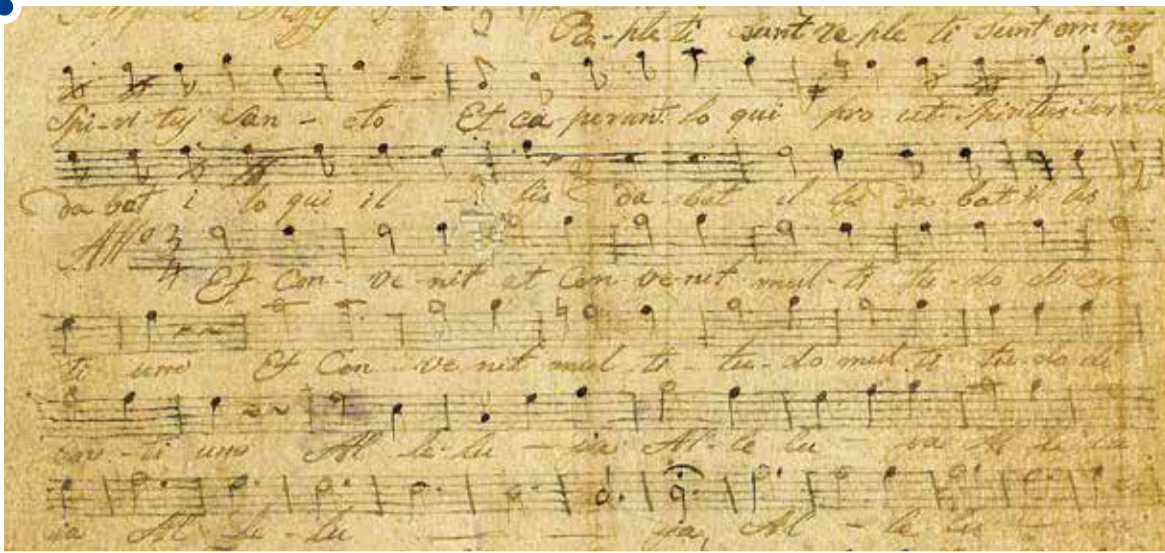 Re-ple ti sunt re ple ti sunt om nes
Spi-ri-tuj San - cto Et cæ perunt lo qui pro ut Spiritus
da bat i lo qui il - lis da - bat il lis da bat il-lis
All° 3/4
Et Con - ve - nit et Con ve-nit mul-ti tu-do di cen
ti um Et Con - ve nit mul ti - tu-do mul ti tu-do di
cen-ti um Al le-lu - ia Al-le lu - ia Al le lu
ia Al - le - lu - ja, Al - le lu - ia